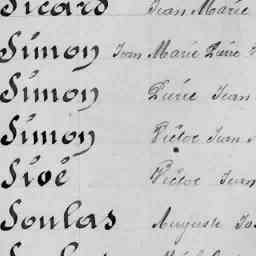 Sicard Jean Marie
Simon Jean Marie Pierre
Simon Pierre Jean
Simon Victor Jean
Sioé Victor Jean
Soulas Auguste